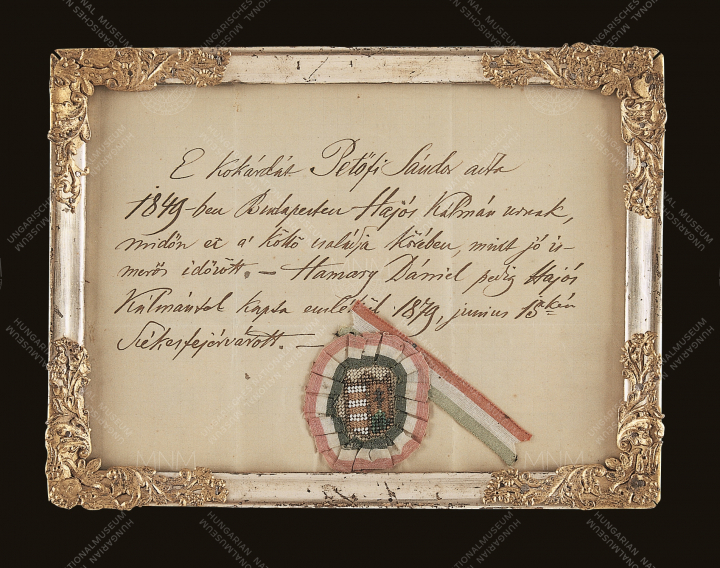 E kokárdát Petőfi Sándor adta
1849-ben Budapesten Hajós Kálmán urnak,
midőn ez a' költő családja körében, mint jó is-
merős időzött. — Hamary Dániel pedig Hajós
Kálmántol kapta emlékül 1879, junius 15-kén
Székesfejérvárott. —
MNM
HUNGARIAN NATIONAL MUSEUM